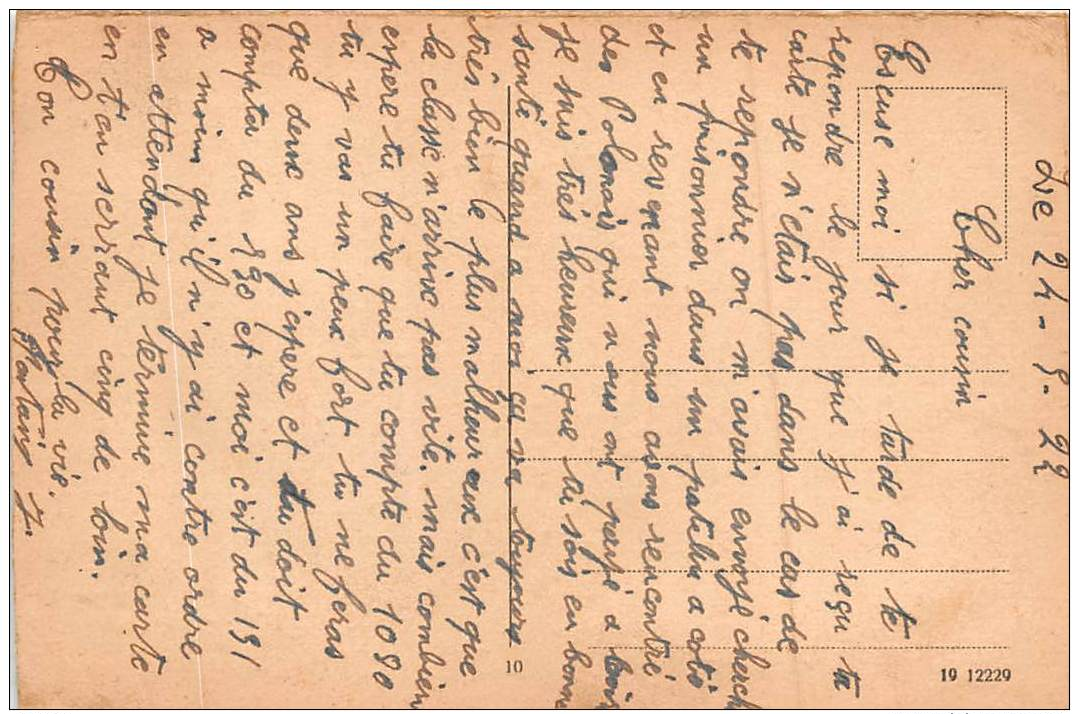 Le 24-5-22
Cher cousin
Escuse moi si je tarde de te
repondre le jour que j'ai reçu ta
carte je n'etais pas dans le cas de
te repondre on m'avais envoyé cherch
un prisonnier dans un patelin a coté
et en revenant nous avons rencontré
des Polonais qui nous ont payé a boir
je suis très heureux que tu sois en bonne
santé quand a moi ça va toujours
très bien le plus malheureux c'est que
la classe n'arrive pas vite. mais combien
espere tu faire que tu compte du 1090
tu y vas un peux fort tu ne feras
que deux ans j'espere et tu doit
compter du 890 et moi c'est du 191
a moins qu'il n'y ai contre ordre
en attendant je termine ma carte
en t'en serrant cinq de loin.
Ton cousin pour la vie.
J.
10
19 12229